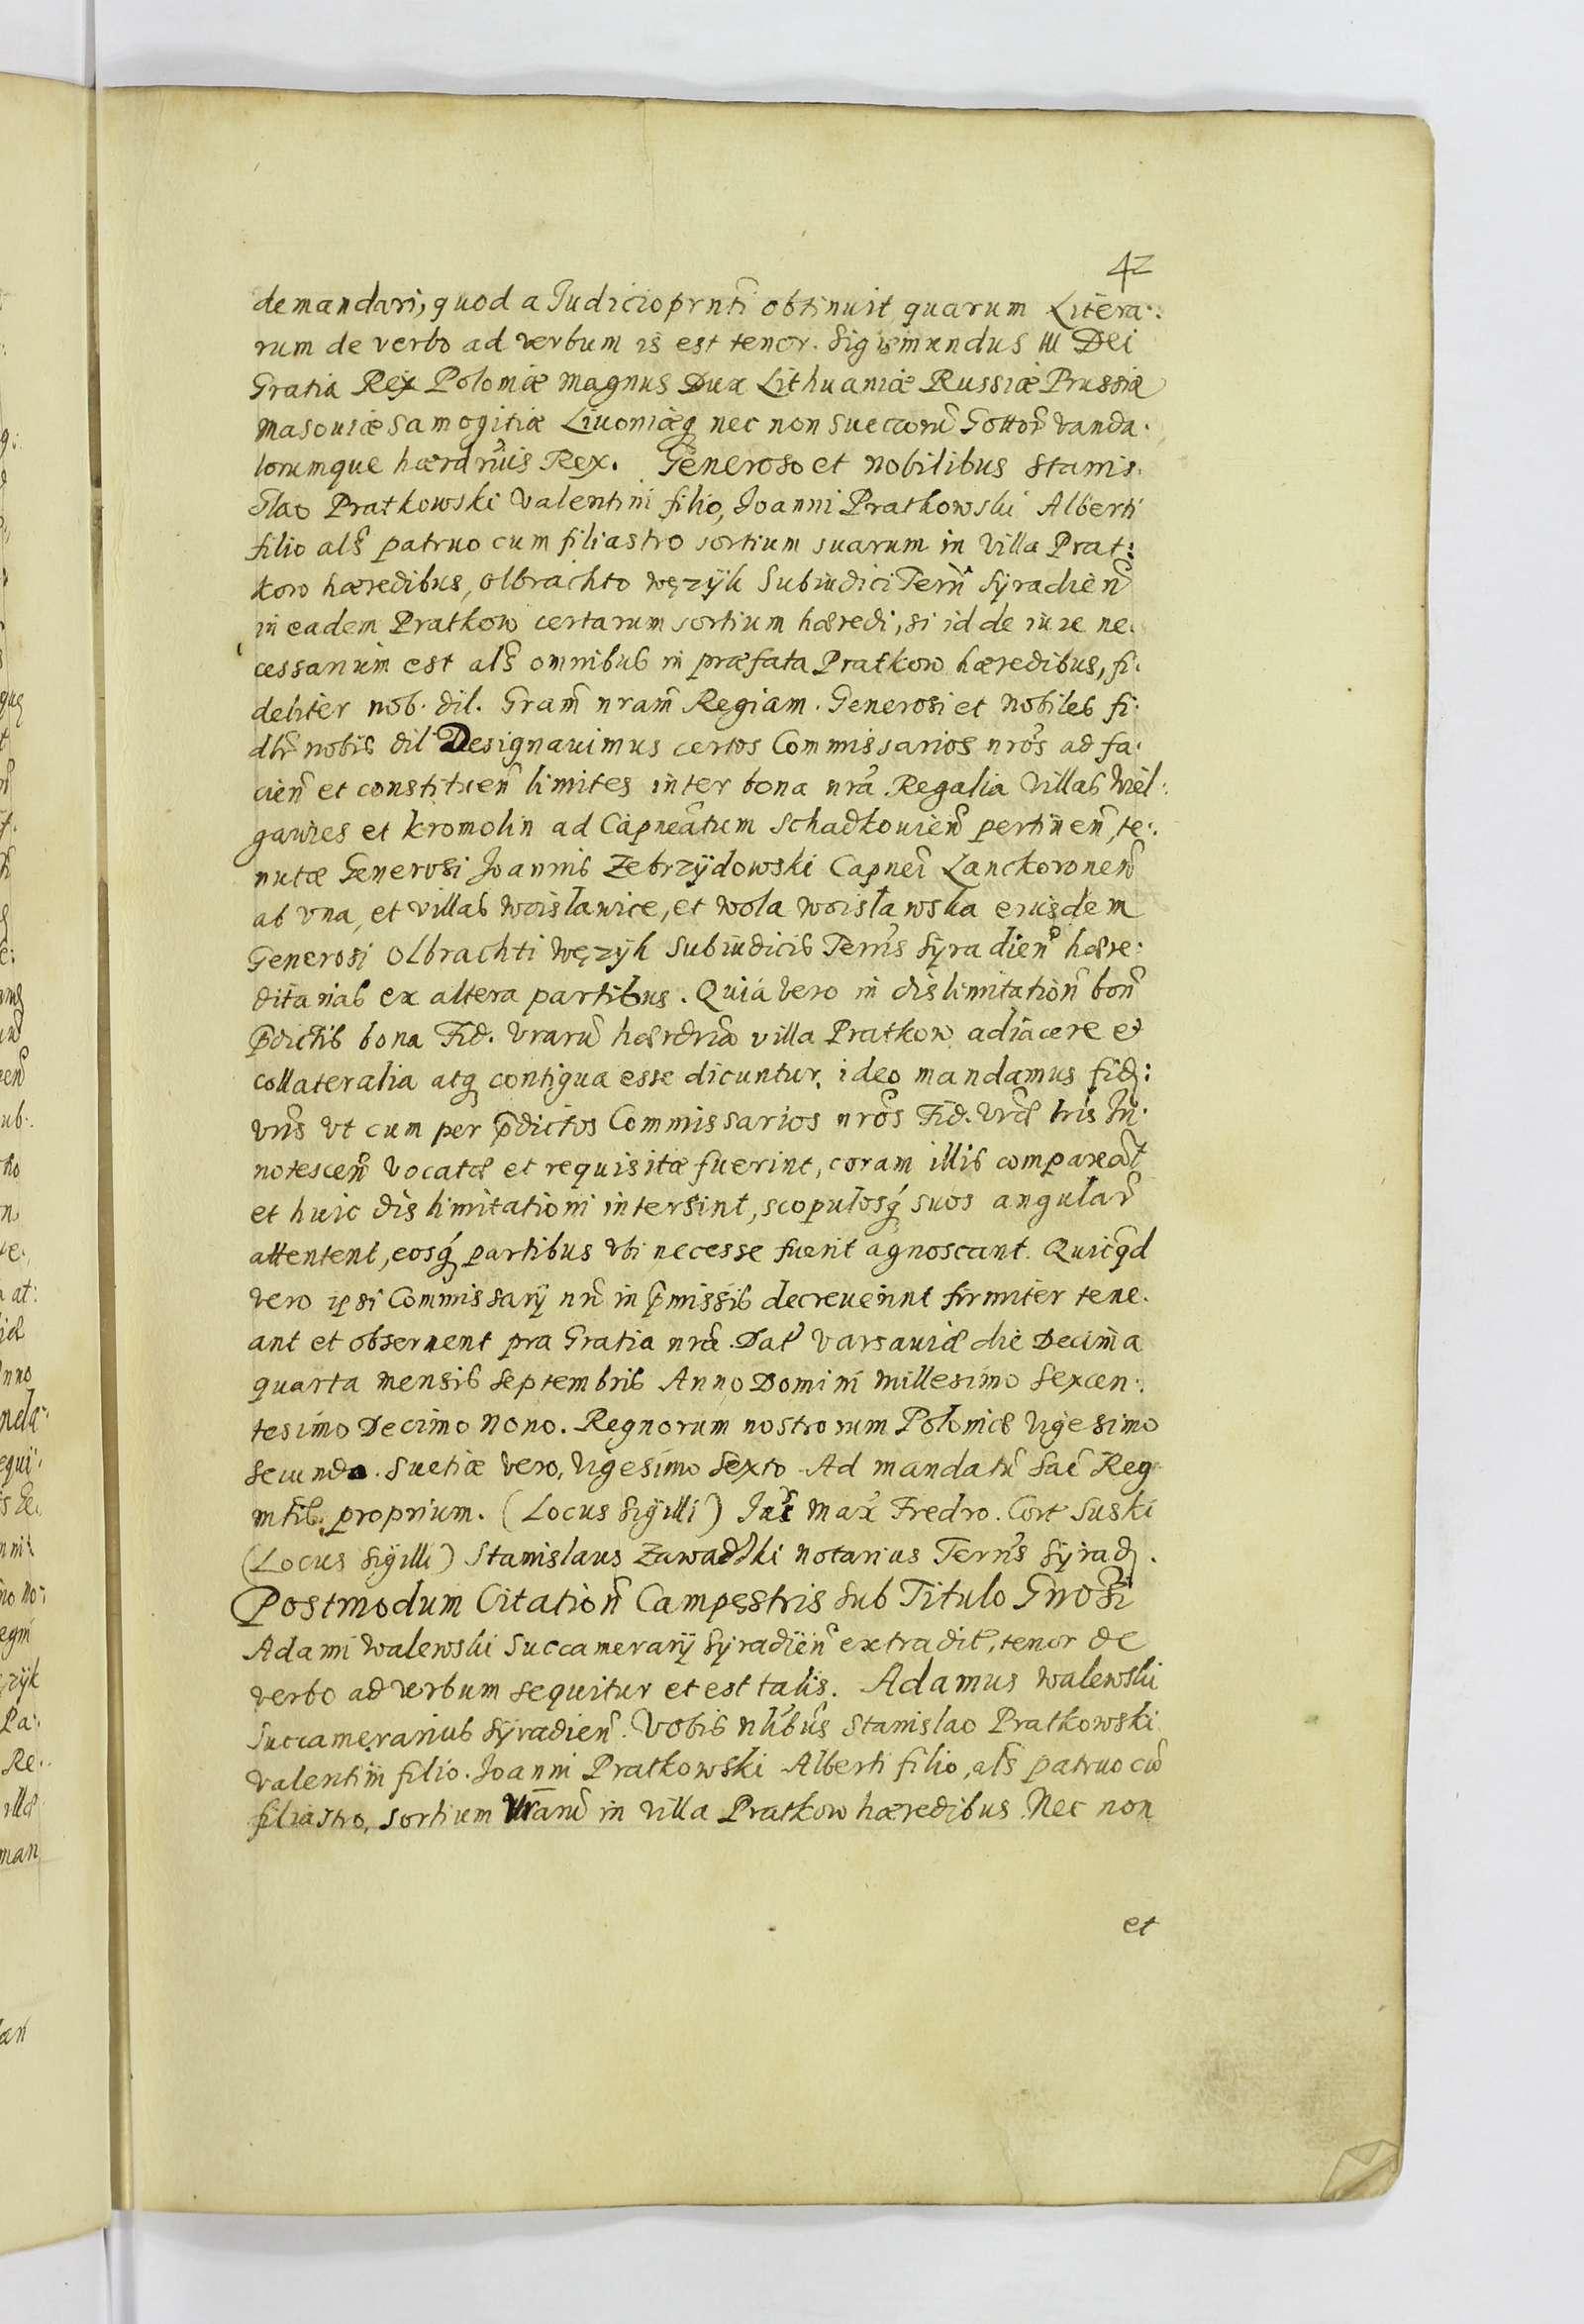 42
demandari, quod a Iudicio prnti obtinuit quarum Litera:
rum de verbo ad verbum is est tenor. Sigismundus III Dei
Gratia Rex Poloniæ Magnus Dux Lithuaniæ Russiæ Prussiæ
Masouiæ Samogitiæ Liuoniæq nec non Sueccorũ Gottor̃ vanda.
lorumque hærdrius Rex. Generoso et nobilibus Stanis.
slao Pratkowski Valentini filio, Joanni Pratkowski Alberti
filio als̃ patruo cum filiastro sortium suarum in Villa Prat:
kow hæredibus, Olbrachto Węzÿk Subiudici Terrñ Sÿradień
in eadem Pratkow certarum sortium hæredi, si id de iure ne.
cessarium est als̃ omnibus in præfata Pratkow hæredibus, fi.
deliter nob. dil. Gram̃ nram̃ Regiam. Generosi et Nobiles fi.
dlr̃ nobis dil Designauimus certos Commissarios nrõs ad fa.
cieñ et constitueñ limites inter bona nrã Regalia Villas Wiel.
gawies et Kromolin ad Capneãtum Schadkouieñ pertineñ, te:.
nutæ Generosi Joannis Zebrzÿdowski Capnei Lanckoroneñ
ab vna, et villas Woisławice, et Wola Woisławska eiusdem
Generosi Olbrachti Węzÿk Subiudicis Terris̃ Sÿradieñ hære:
ditarias ex altera partibus. Quia vero in dislimitatioñ boñ
p̃dictis bona Fid. Vrarũ hærdria villa Pratkow adiacere et
collateralia atq contigua esse dicuntur, ideo mandamus fid:
vris̃ vt cum per p̃dictos Commissarios nrõs Fid. Vræ̃ lris In.
notesceñ vocatæ et requisitæ fuerint, coram illis compareãt
et huic dislimitationi intersint, scopulosq suos angular̃
attentent, eosq partibus vbi necesse fuerit agnoscant. Quicq̃d
vero ipsi Commissarÿ nrĩ in p̃missis decreuerint firmiter tene.
ant et obseruent pra Gratia nrã. Dat Varsauiæ die Decima
quarta mensis Septembris Anno Domini Millesimo Sexcen:.
tesimo Decimo Nono. Regnorum nostrorum Poloniæ Vigesimo
Secundo. Suetiæ vero, Vigesimo Sexto. Ad mandatũ Sac̃ Reg
mtis̃ proprium. (Locus Sigilli) Max Fredro. Cort Suski
(Locus Sigilli) Stanislaus Zawadzki Notarius Terris̃ Sÿrad.
Postmodum Citatioñ Campęstris sub Titulo Gnosĩ
Adami Walewski Succamerarÿ Sÿradieñ extradit, tenor de
verbo ad verbum sequitur et est talis. Adamus Walewski
Succamerarius Sÿradieñ. Vobis nlibũs Stanislao Pratkowski
Valentini filio. Joanni Pratkowski Alberti filio, als̃ patruo cũ
filiastro, sortium Vrarũ in Villa Pratkow hæredibus. Nec non
et